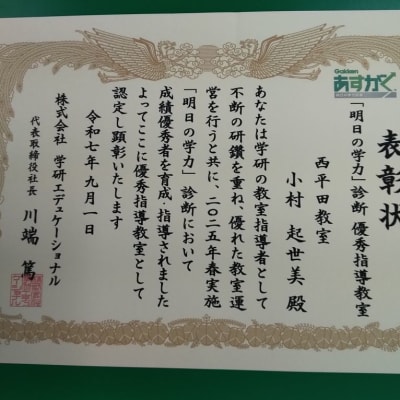 Gakken
あすがく
表彰状
「明日の学力」診断 優秀指導教室
西平田教室
小村 起世美 殿
あなたは学研の教室指導者として
不断の研鑽を重ね、優れた教室運
営を行うと共に、二〇二五年春実施
「明日の学力」診断において
成績優秀者を育成・指導されました
よってここに優秀指導教室として
認定し顕彰いたします
令和七年九月一日
株式会社 学研エデュケーショナル
代表取締役社長 川端 篤